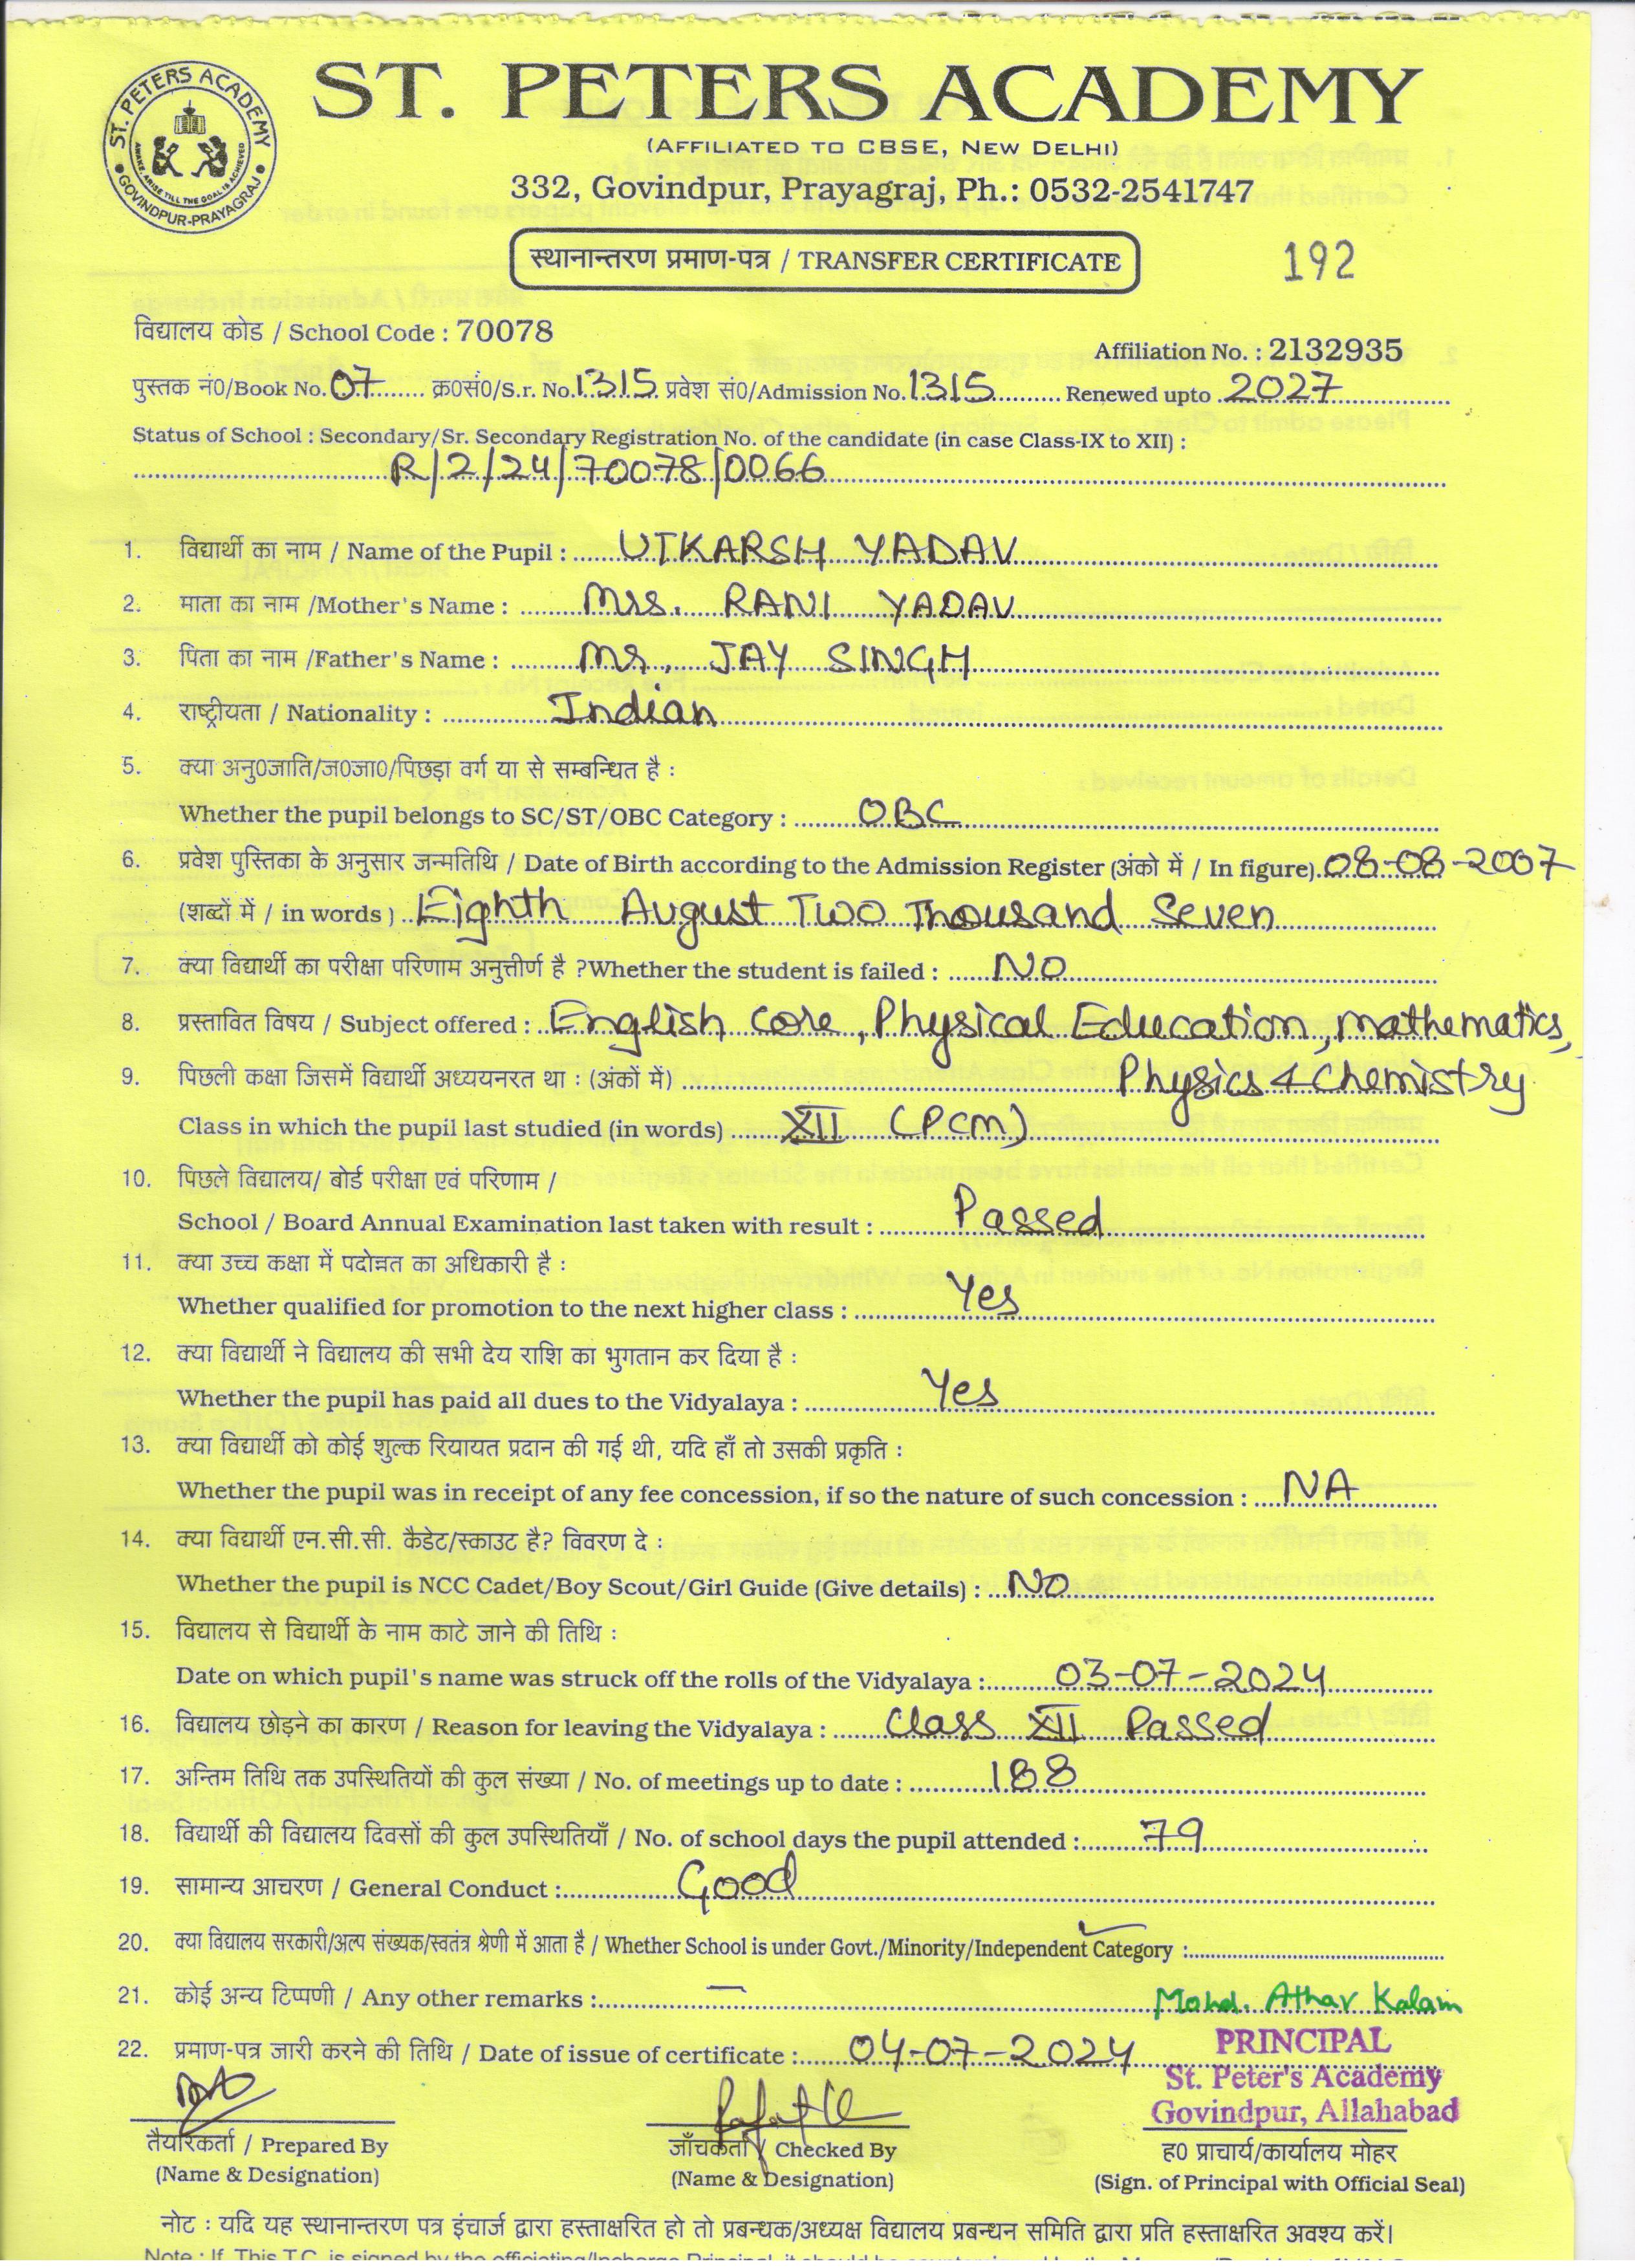 ST. PETERS ACADEMY
AWAKE, ARISE TILL THE GOAL IS ACHIEVED
GOVINDPUR-PRAYAGRAJ
ST. PETERS ACADEMY
(AFFILIATED TO CBSE, NEW DELHI)
332, Govindpur, Prayagraj, Ph.: 0532-2541747
स्थानान्तरण प्रमाण-पत्र / TRANSFER CERTIFICATE
192
विद्यालय कोड / School Code : 70078
Affiliation No. : 2132935
पुस्तक नं0/Book No. 07 क्र0सं0/S.r. No. 1315 प्रवेश सं0/Admission No. 1315 Renewed upto 2027
Status of School : Secondary/Sr. Secondary Registration No. of the candidate (in case Class-IX to XII) :
R/2/24/70078/0066
1. विद्यार्थी का नाम / Name of the Pupil : UTKARSH YADAV
2. माता का नाम /Mother's Name : Mrs. RANI YADAV
3. पिता का नाम /Father's Name : Mr. JAY SINGH
4. राष्ट्रीयता / Nationality : Indian
5. क्या अनु0जाति/ज0जा0/पिछड़ा वर्ग या से सम्बन्धित है :
Whether the pupil belongs to SC/ST/OBC Category : OBC
6. प्रवेश पुस्तिका के अनुसार जन्मतिथि / Date of Birth according to the Admission Register (अंको में / In figure) 08-08-2007
(शब्दों में / in words ) Eighth August Two Thousand Seven
7. क्या विद्यार्थी का परीक्षा परिणाम अनुत्तीर्ण है ?Whether the student is failed : NO
8. प्रस्तावित विषय / Subject offered : English Core, Physical Education, Mathematics,
9. पिछली कक्षा जिसमें विद्यार्थी अध्ययनरत था : (अंकों में) Physics & Chemistry
Class in which the pupil last studied (in words) XII (PCM)
10. पिछले विद्यालय/ बोर्ड परीक्षा एवं परिणाम /
School / Board Annual Examination last taken with result : Passed
11. क्या उच्च कक्षा में पदोन्नत का अधिकारी है :
Whether qualified for promotion to the next higher class : Yes
12. क्या विद्यार्थी ने विद्यालय की सभी देय राशि का भुगतान कर दिया है :
Whether the pupil has paid all dues to the Vidyalaya : Yes
13. क्या विद्यार्थी को कोई शुल्क रियायत प्रदान की गई थी, यदि हाँ तो उसकी प्रकृति :
Whether the pupil was in receipt of any fee concession, if so the nature of such concession : NA
14. क्या विद्यार्थी एन.सी.सी. कैडेट/स्काउट है? विवरण दे :
Whether the pupil is NCC Cadet/Boy Scout/Girl Guide (Give details) : NO
15. विद्यालय से विद्यार्थी के नाम काटे जाने की तिथि :
Date on which pupil's name was struck off the rolls of the Vidyalaya : 03-07-2024
16. विद्यालय छोड़ने का कारण / Reason for leaving the Vidyalaya : Class XII Passed
17. अन्तिम तिथि तक उपस्थितियों की कुल संख्या / No. of meetings up to date : 188
18. विद्यार्थी की विद्यालय दिवसों की कुल उपस्थितियाँ / No. of school days the pupil attended : 79
19. सामान्य आचरण / General Conduct : Good
20. क्या विद्यालय सरकारी/अल्प संख्यक/स्वतंत्र श्रेणी में आता है / Whether School is under Govt./Minority/Independent Category :
21. कोई अन्य टिप्पणी / Any other remarks : — Mohd. Athar Kalam
22. प्रमाण-पत्र जारी करने की तिथि / Date of issue of certificate : 04-07-2024
PRINCIPAL
St. Peter's Academy
Govindpur, Allahabad
तैयारकर्ता / Prepared By
(Name & Designation)
जाँचकर्ता / Checked By
(Name & Designation)
ह0 प्राचार्य/कार्यालय मोहर
(Sign. of Principal with Official Seal)
नोट : यदि यह स्थानान्तरण पत्र इंचार्ज द्वारा हस्ताक्षरित हो तो प्रबन्धक/अध्यक्ष विद्यालय प्रबन्धन समिति द्वारा प्रति हस्ताक्षरित अवश्य करें।